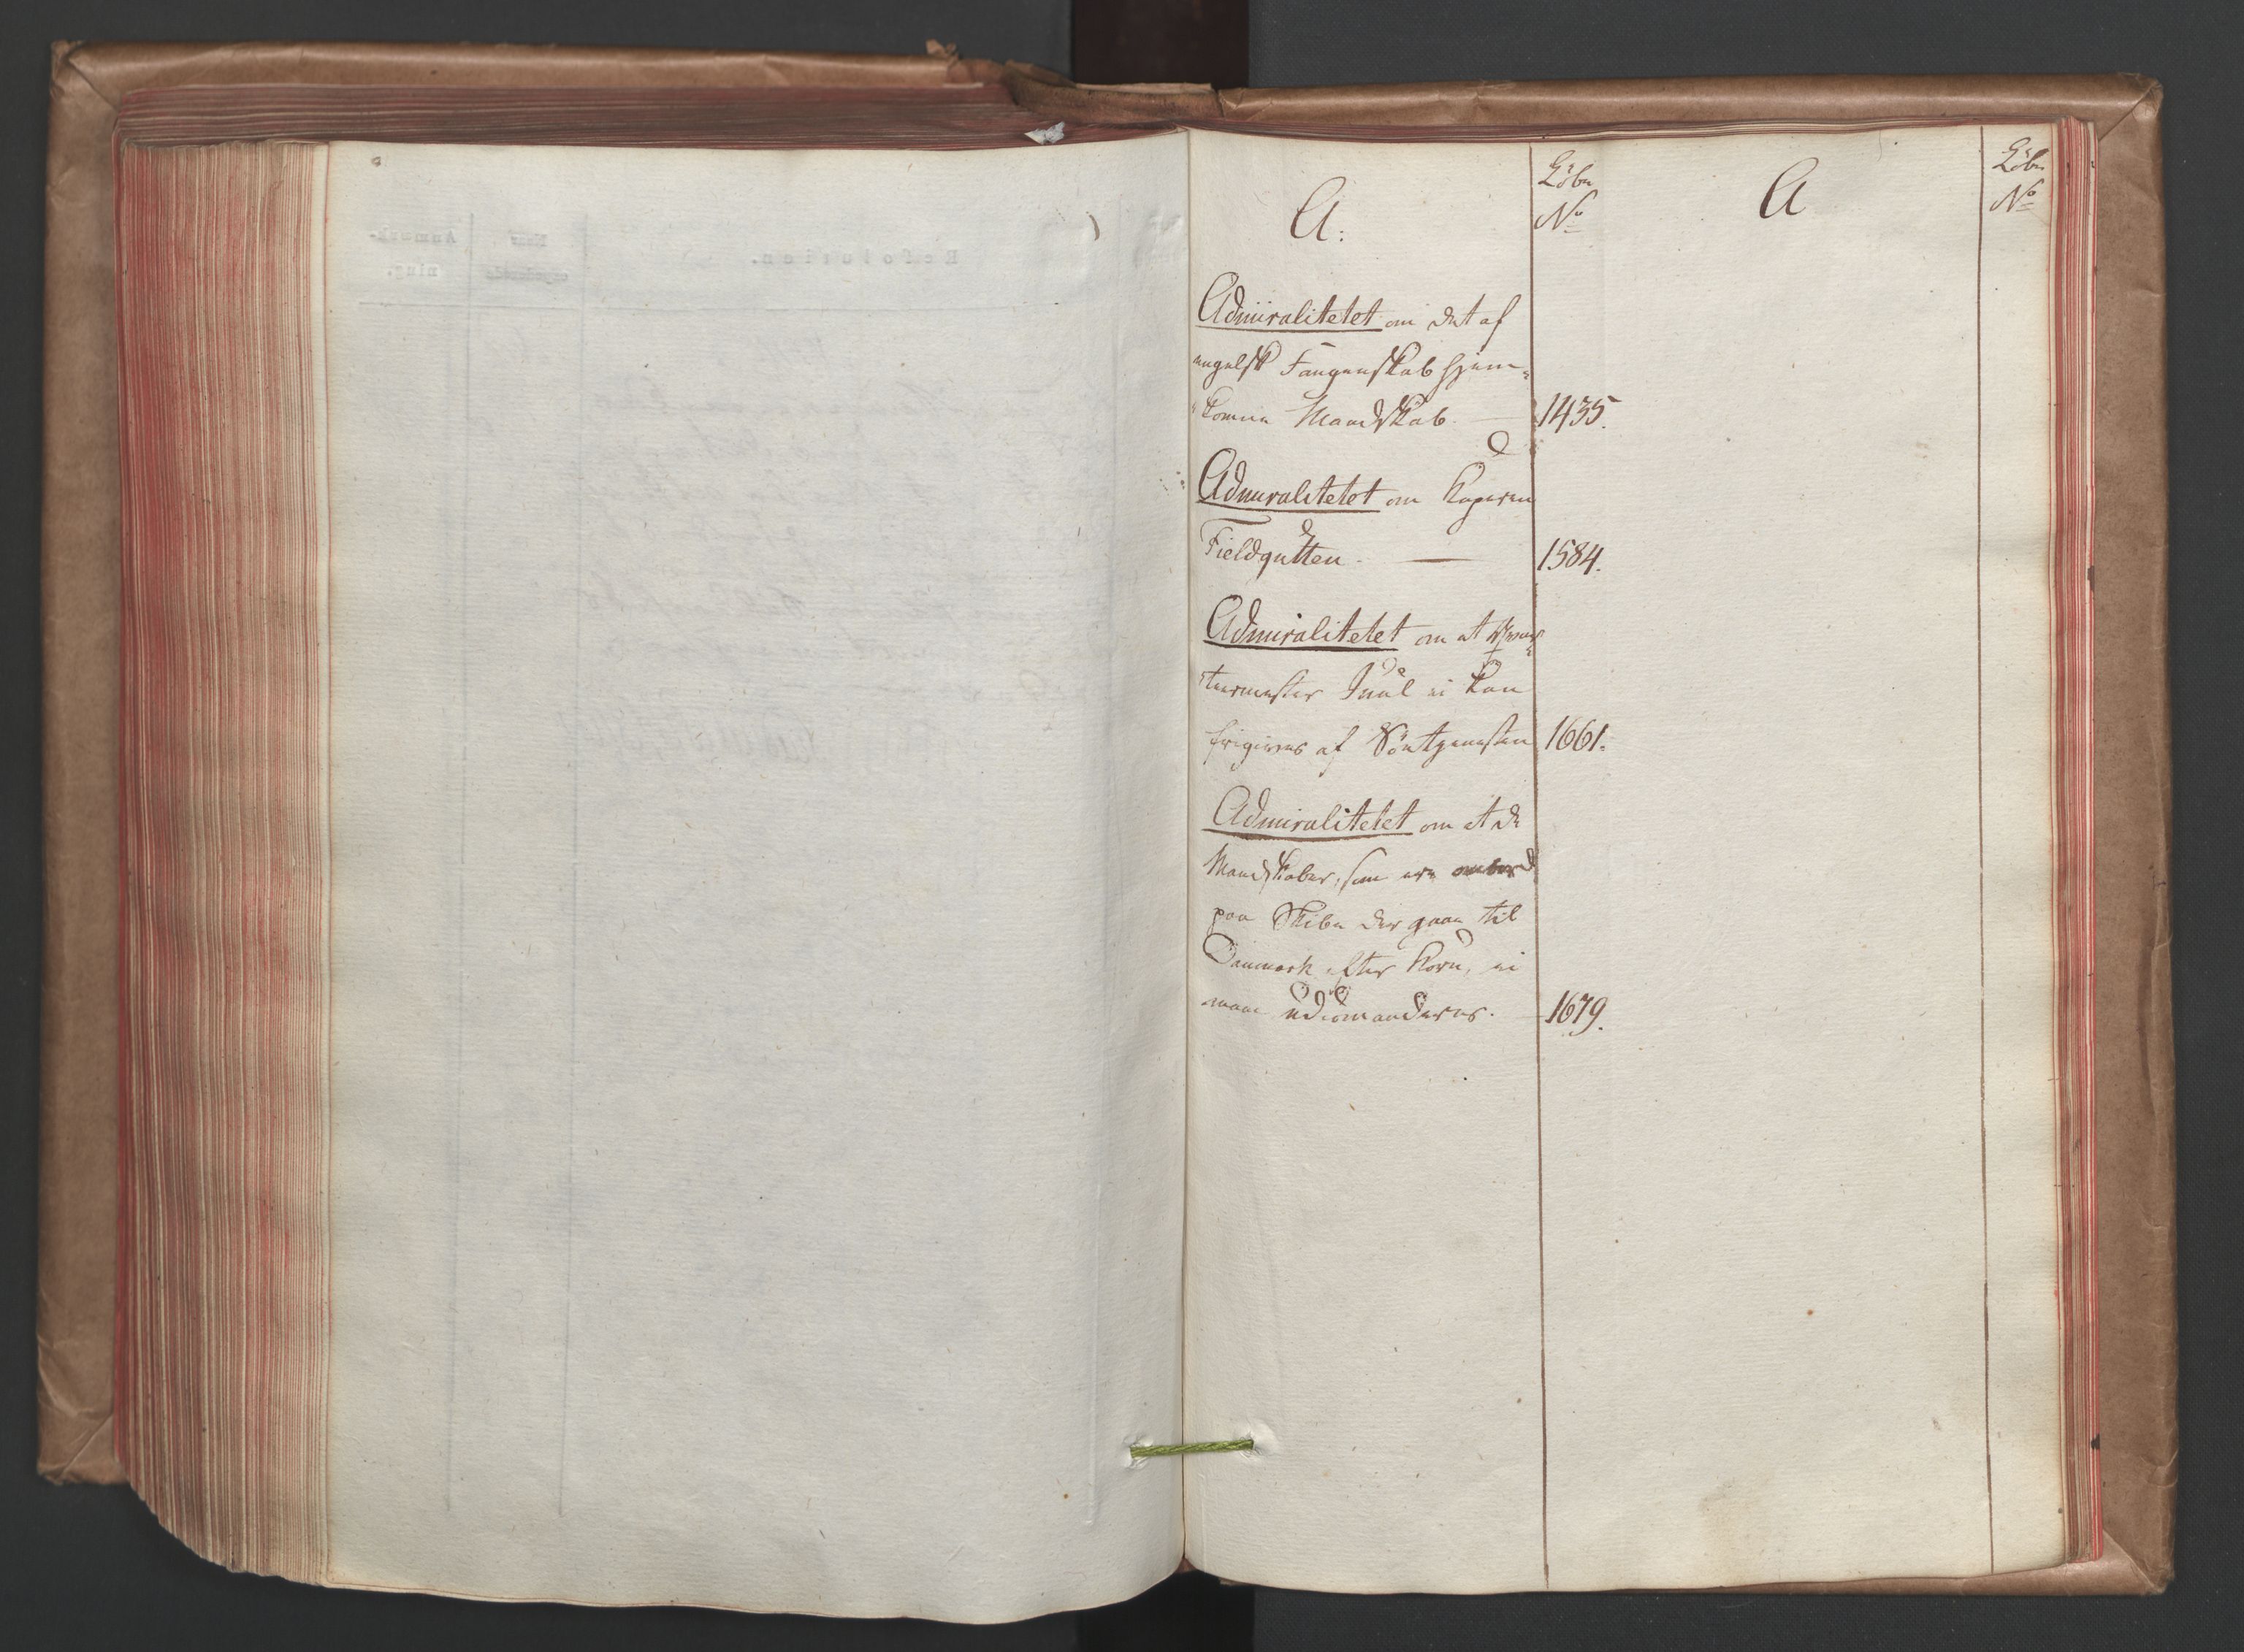 A:
Löbe
No
A
Löbe
No
Admiralitetet om det af
engelsk Fangenskab hjem-
komne Mandskab. 1435.
Admiralitetet om Kaperen
Fieldgutten. — 1584.
Admiralitetet om at
Juul ei kan
frigives af Söetjenesten 1661.
Admiralitetet om at de
Mandskaber, som ere ombord
paa Skibe der gaae til
Danmark efter Korn, ei
maae udcomanderes. 1679.